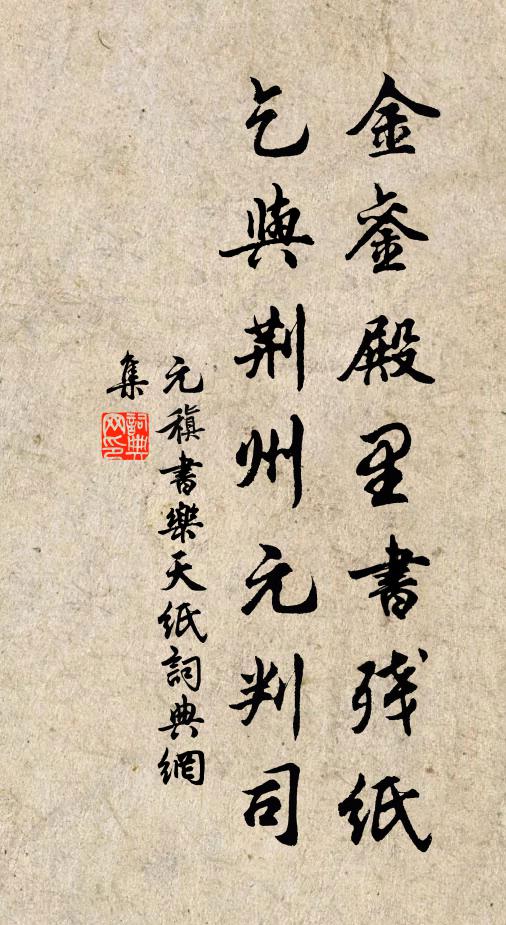 金銮殿里書残紙
乞與荆州元判司
元稹書樂天紙詞典網
集
詞典网印